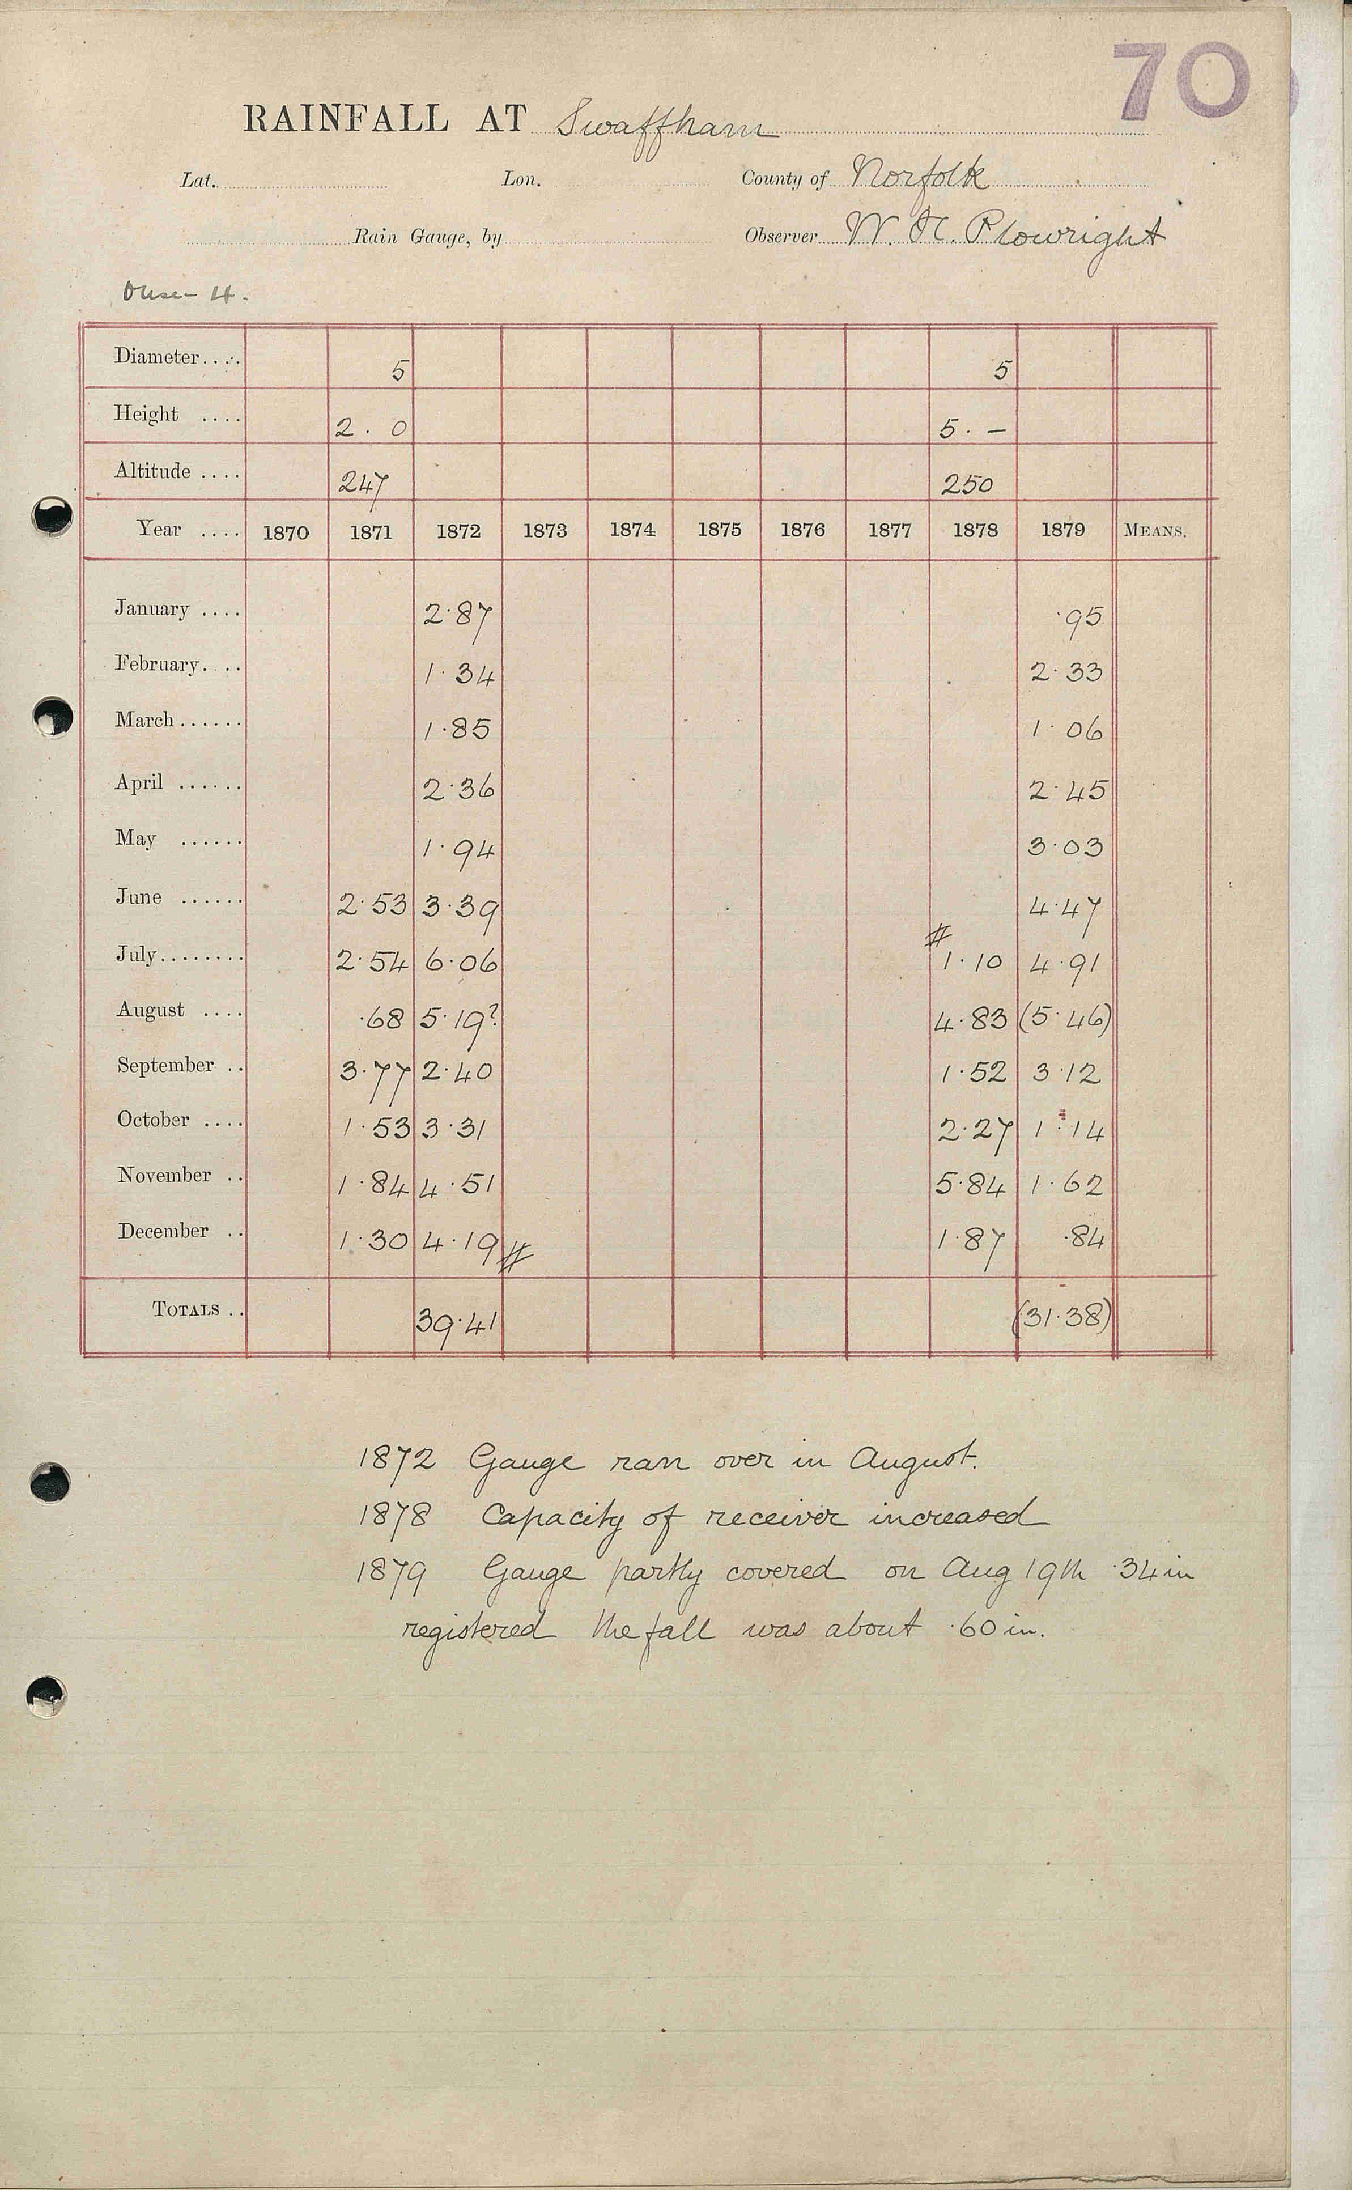 70
RAINFALL AT Swaffham
Lat. Lon. County of Norfolk
Rain Gauge, by Observer W. H. Plowright
Ouse - 4.
Diameter.... 5 5
Height .... 2. 0 5. -
Altitude .... 247 250
Year .... 1870 1871 1872 1873 1874 1875 1876 1877 1878 1879 MEANS.
January .... 2.87 .95
February. .. 1.34 2.33
March...... 1.85 1.06
April ...... 2.36 2.45
May ...... 1.94 3.03
June ...... 2.53 3.39 4.47
July........ 2.54 6.06 # 1.10 4.91
August .... .68 5.19? 4.83 (5.46)
September .. 3.77 2.40 1.52 3.12
October .... 1.53 3.31 2.27 1.14
November .. 1.84 4.51 5.84 1.62
December .. 1.30 4.19 # 1.87 .84
TOTALS .. 39.41 (31.38)
1872 Gauge ran over in August.
1878 Capacity of receiver increased
1879 Gauge partly covered on Aug 19th .34 in
registered the fall was about .60 in.